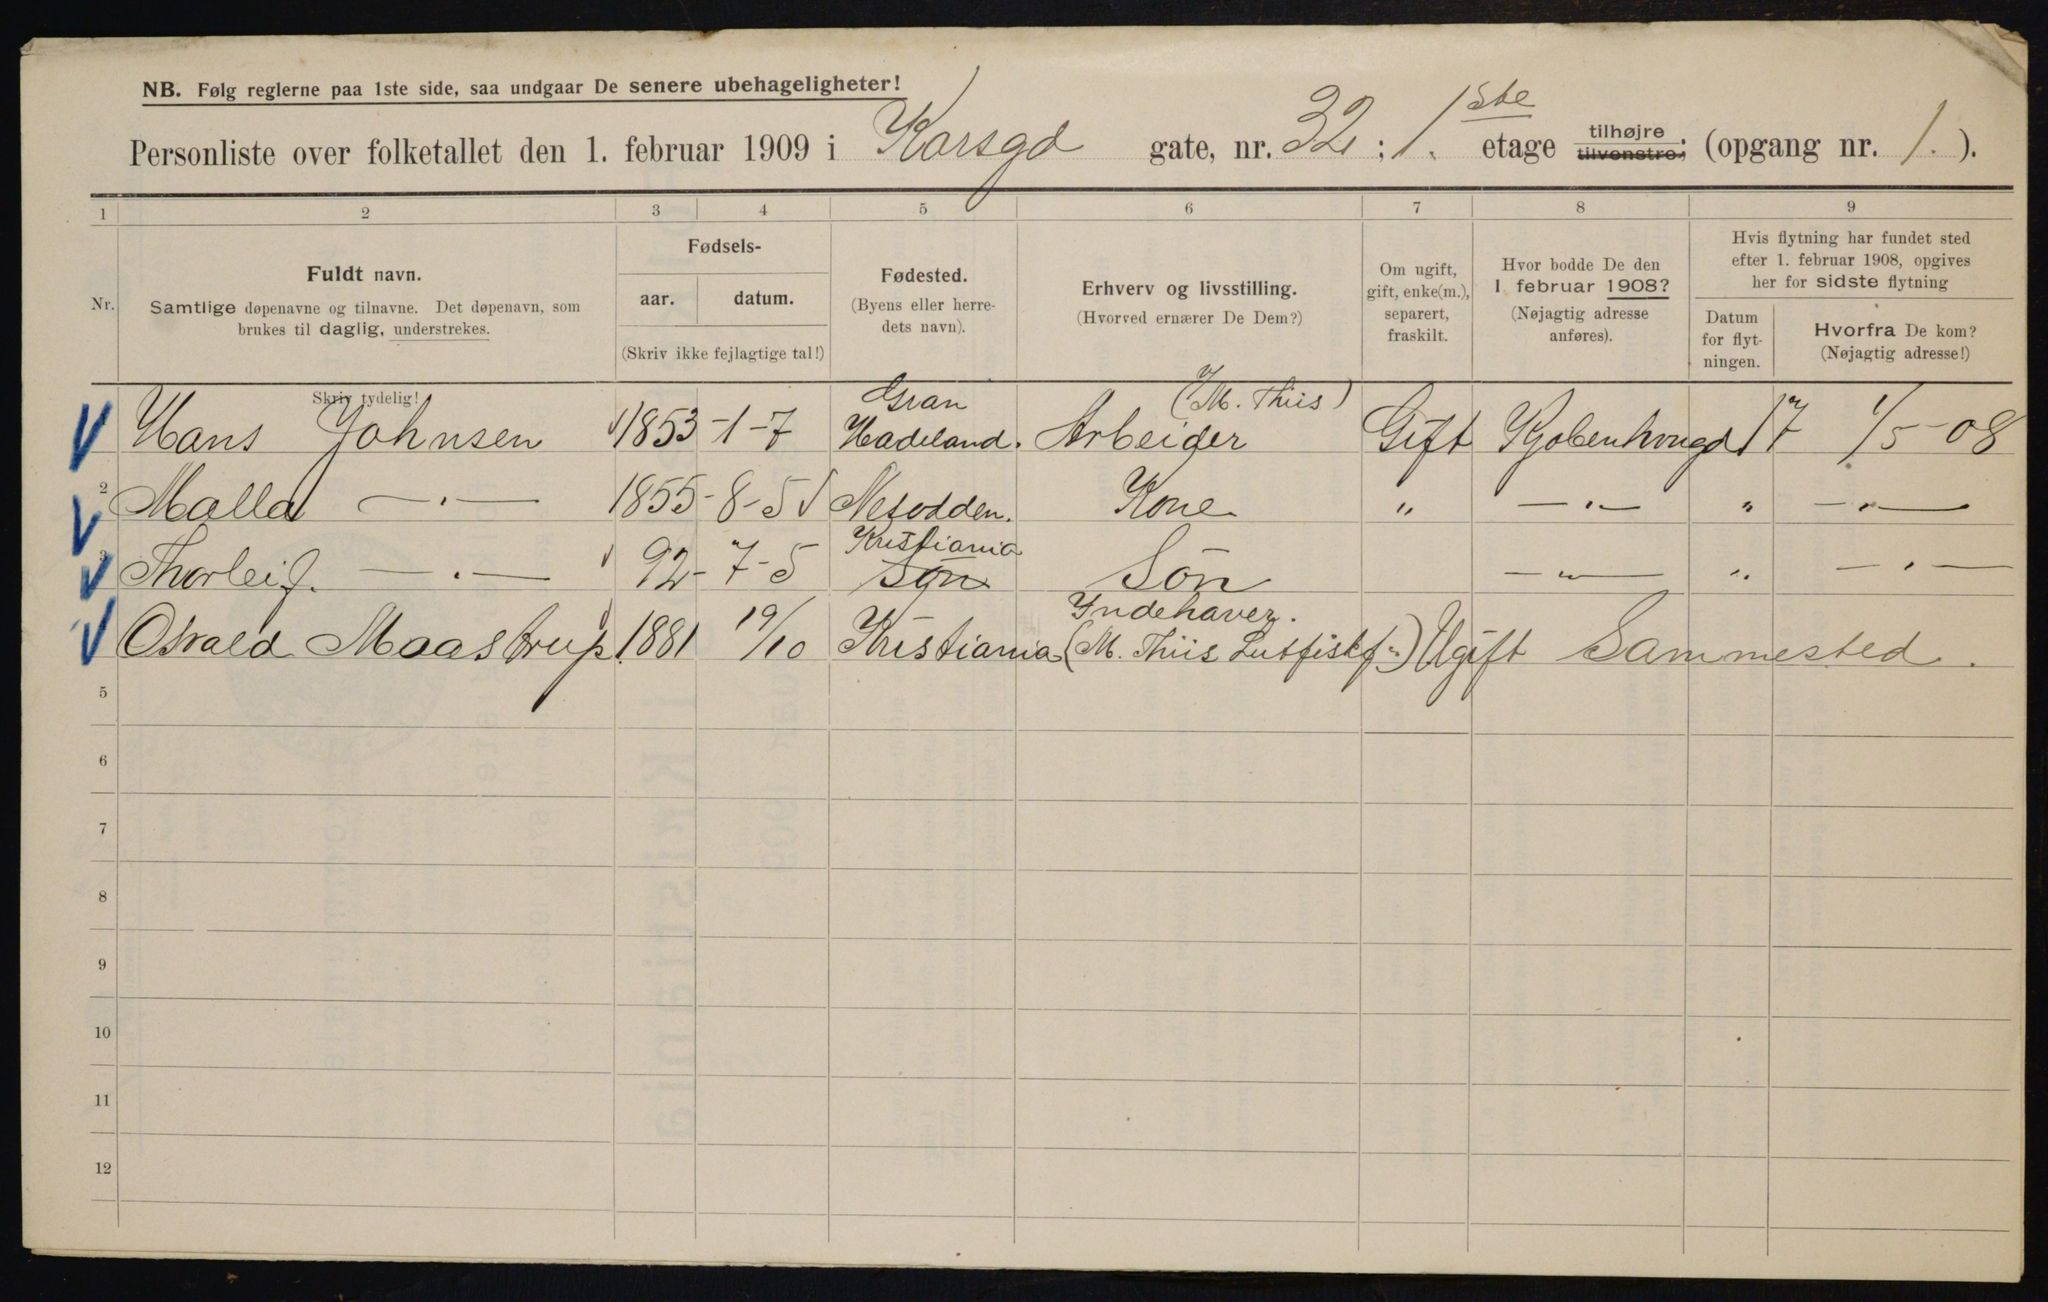 NB. Følg reglerne paa 1ste side, saa undgaar De senere ubehageligheter!
Personliste over folketallet den 1. februar 1909 i Korsgd gate, nr. 32 ; 1. ste etage tilhøjre tilvenstre; (opgang nr. 1. ).
1 2 3 4 5 6 7 8 9
Nr.
Fuldt navn.
Samtlige døpenavne og tilnavne. Det døpenavn, som
brukes til daglig, understrekes.
Skriv tydelig!
Fødsels-
aar. datum.
(Skriv ikke fejlagtige tal!)
Fødested.
(Byens eller herre-
dets navn).
Erhverv og livsstilling.
(Hvorved ernærer De Dem?)
Om ugift,
gift, enke(m.),
separert,
fraskilt.
Hvor bodde De den
1. februar 1908?
(Nøjagtig adresse
anføres).
Hvis flytning har fundet sted
efter 1. februar 1908, opgives
her for sidste flytning
Datum
for flyt-
ningen.
Hvorfra De kom?
(Nøjagtig adresse!)
Gran (M. Thiis)
Hans Johnsen 1853 -1-7 Hadeland. Arbeider Gift Kjobenhvngd 17 1/5-08
2 Malla —"— 1855 -8-5 Nesodden. Kone " —"— " —"—
Kristiania
3 Thorleif. —"— 92- 7-5 Søn Søn —"— " —"—
Indehaver.
Osvald Maastrup. 1881 19/10 Kristiania (M. Thiis Lutfiskf.) Ugift Sammested.
5
6
7
8
9
10
11
12